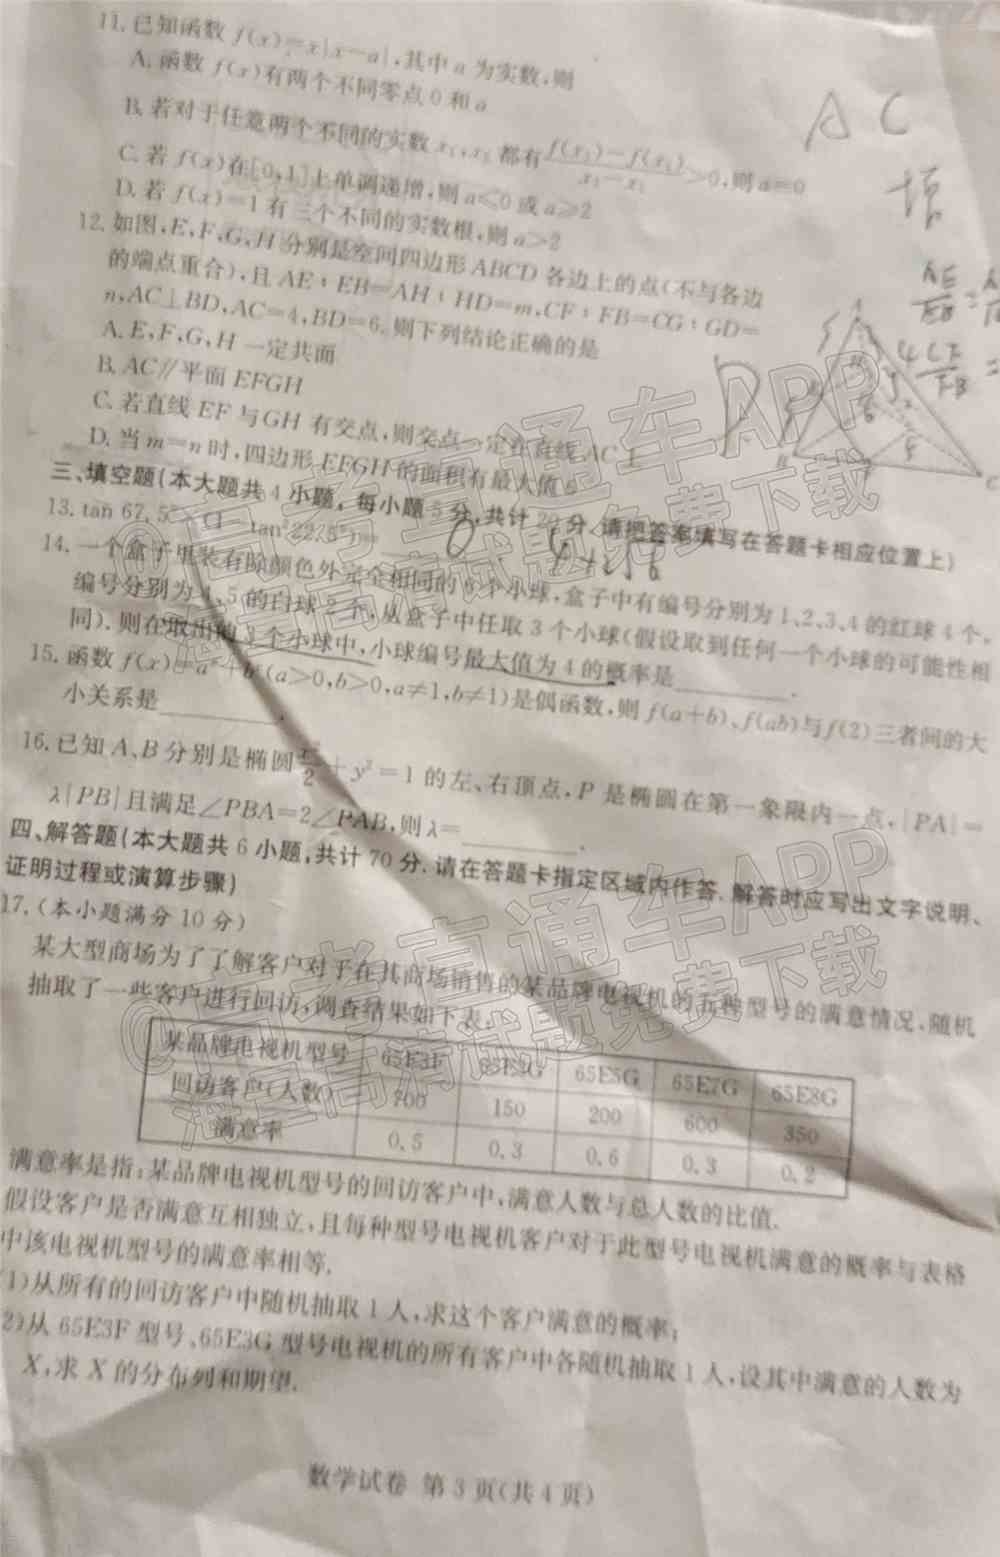 11.已知函数 f(x)=x|x-a|,其中 a 为实数,则
A.函数 f(x)有两个不同零点 0 和 a
B.若对于任意两个不同的实数 x₁,x₂ 都有 >0,则 a=0
C.若 f(x)在[0,1]上单调递增,则 a≤0 或 a≥2
D.若 f(x)=1 有三个不同的实数根,则 a>2
12.如图,E,F,G,H 分别是空间四边形 ABCD 各边上的点(不与各边
的端点重合),且 AE:EB=AH:HD=m,CF:FB=CG:GD=
n,AC⊥BD,AC=4,BD=6.则下列结论正确的是
A.E,F,G,H 一定共面
B.AC∥平面 EFGH
C.若直线 EF 与 GH 有交点,则交点一定在直线 AC 上
D.当 m=n 时,四边形 EFGH 的面积有最大值 6
A C
三、填空题(本大题共 4 小题,每小题 5 分,共计 20 分.请把答案填写在答题卡相应位置上)
13.tan 67.5° tan²22.5°)=
14.一个盒子里装有除颜色外完全相同的 6 个小球,盒子中有编号分别为 1、2、3、4 的红球 4 个,
编号分别为 4、5 的白球 2 个,从盒子中任取 3 个小球(假设取到任何一个小球的可能性相
同).则在取出的 3 个小球中,小球编号最大值为 4 的概率是________.
15.函数 f(x)=aˣ+bˣ(a>0,b>0,a≠1,b≠1)是偶函数,则 f(a+b)、f(ab)与 f(2)三者间的大
小关系是________.
16.已知 A、B 分别是椭圆 x²/2+y²=1 的左、右顶点,P 是椭圆在第一象限内一点,|PA|=
λ|PB|且满足∠PBA=2∠PAB,则 λ=________.
四、解答题(本大题共 6 小题,共计 70 分.请在答题卡指定区域内作答.解答时应写出文字说明、
证明过程或演算步骤)
17.(本小题满分 10 分)
某大型商场为了了解客户对于在其商场销售的某品牌电视机的五种型号的满意情况,随机
抽取了一些客户进行回访,调查结果如下表:
某品牌电视机型号 65E3F 65E3G 65E5G 65E7G 65E8G
回访客户(人数) 700 150 200 600 350
满意率 0.5 0.3 0.6 0.3 0.2
满意率是指:某品牌电视机型号的回访客户中,满意人数与总人数的比值.
假设客户是否满意互相独立,且每种型号电视机客户对于此型号电视机满意的概率与表格
中该电视机型号的满意率相等.
1)从所有的回访客户中随机抽取 1 人,求这个客户满意的概率;
2)从 65E3F 型号、65E3G 型号电视机的所有客户中各随机抽取 1 人,设其中满意的人数为
X,求 X 的分布列和期望.
数学试卷 第 3 页(共 4 页)
@高考直通车APP
海量高清试题免费下载
@高考直通车APP
海量高清试题免费下载